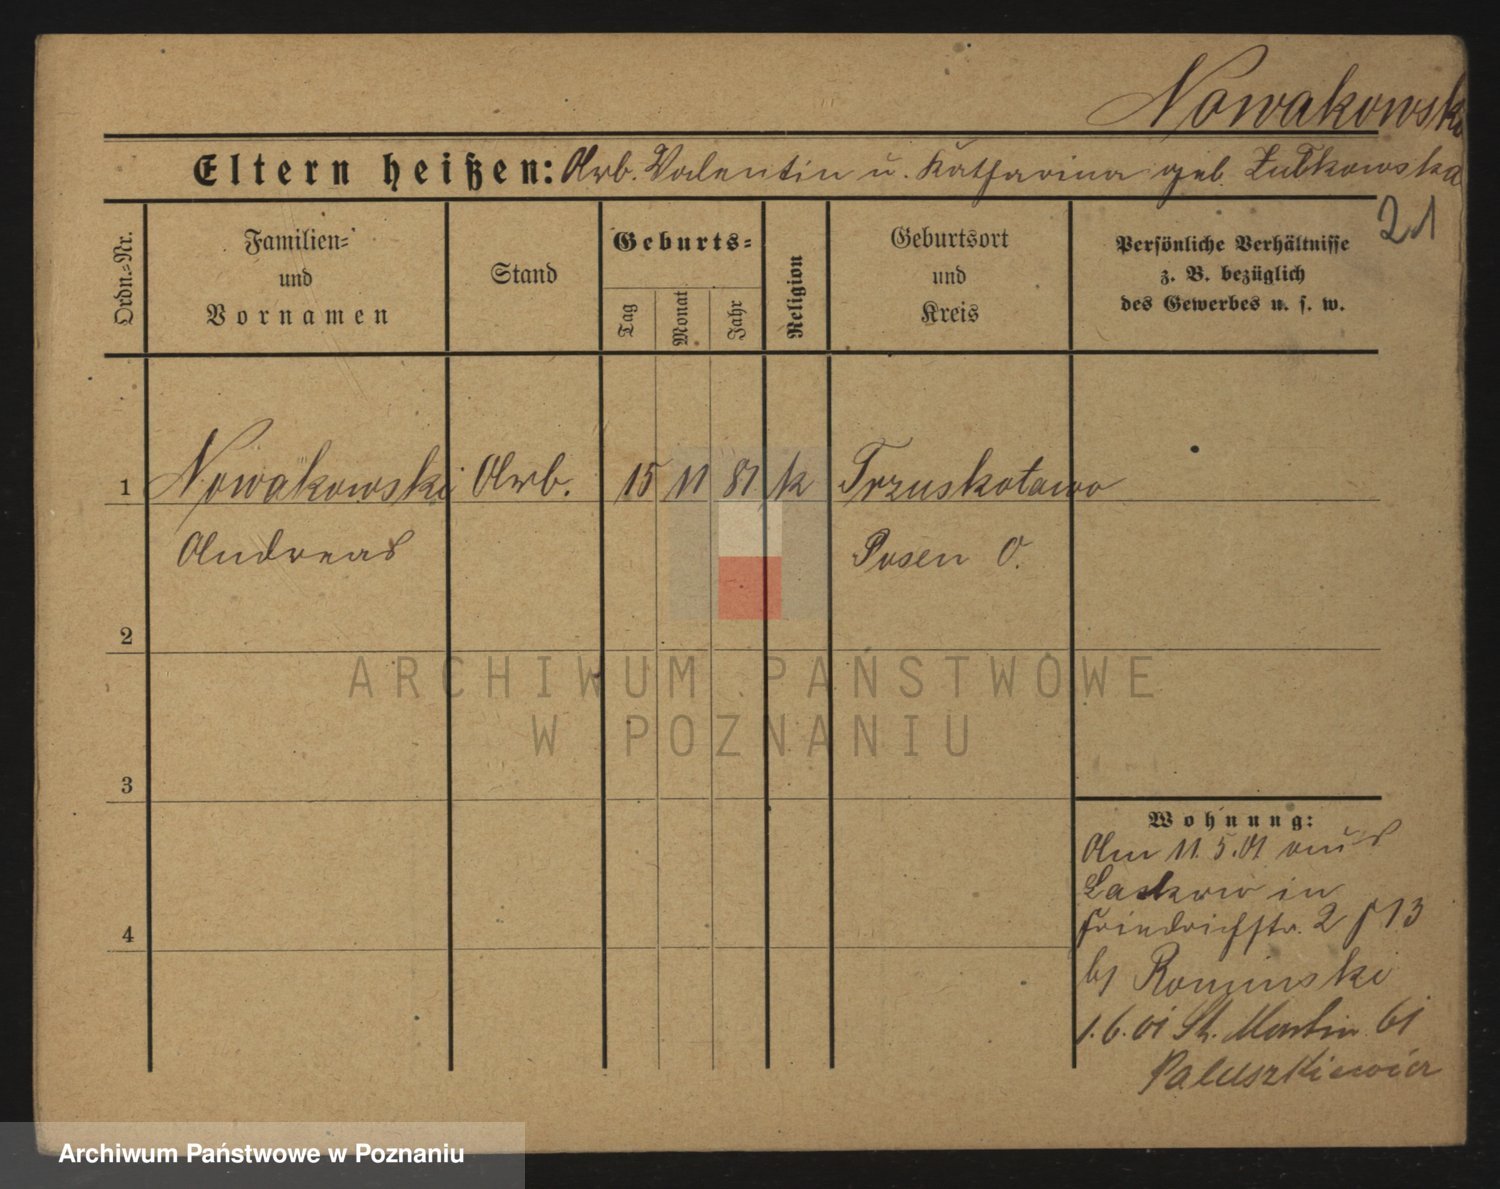 Nowakowski
Eltern heißen: Arb. Valentin u. Katharina geb. Żubkowska
21
Ordn.-Nr.
Familien-
und
Vornamen
Stand
Geburts-
Tag
Monat
Jahr
Religion
Geburtsort
und
Kreis
Persönliche Verhältnisse
z. B. bezüglich
des Gewerbes u. s. w.
1 Nowakowski Arb. 15 11 81 k Trzuskotowo
Andreas Posen O.
2
ARCHIWUM PAŃSTWOWE
W POZNANIU
3
Wohnung:
Am 11. 5. 01 aus
in
Friedrichstr. 2 13
b/ Rominski
1. 6. 01 St. Martin 61
Paluszkiewicz
4
Archiwum Państwowe w Poznaniu